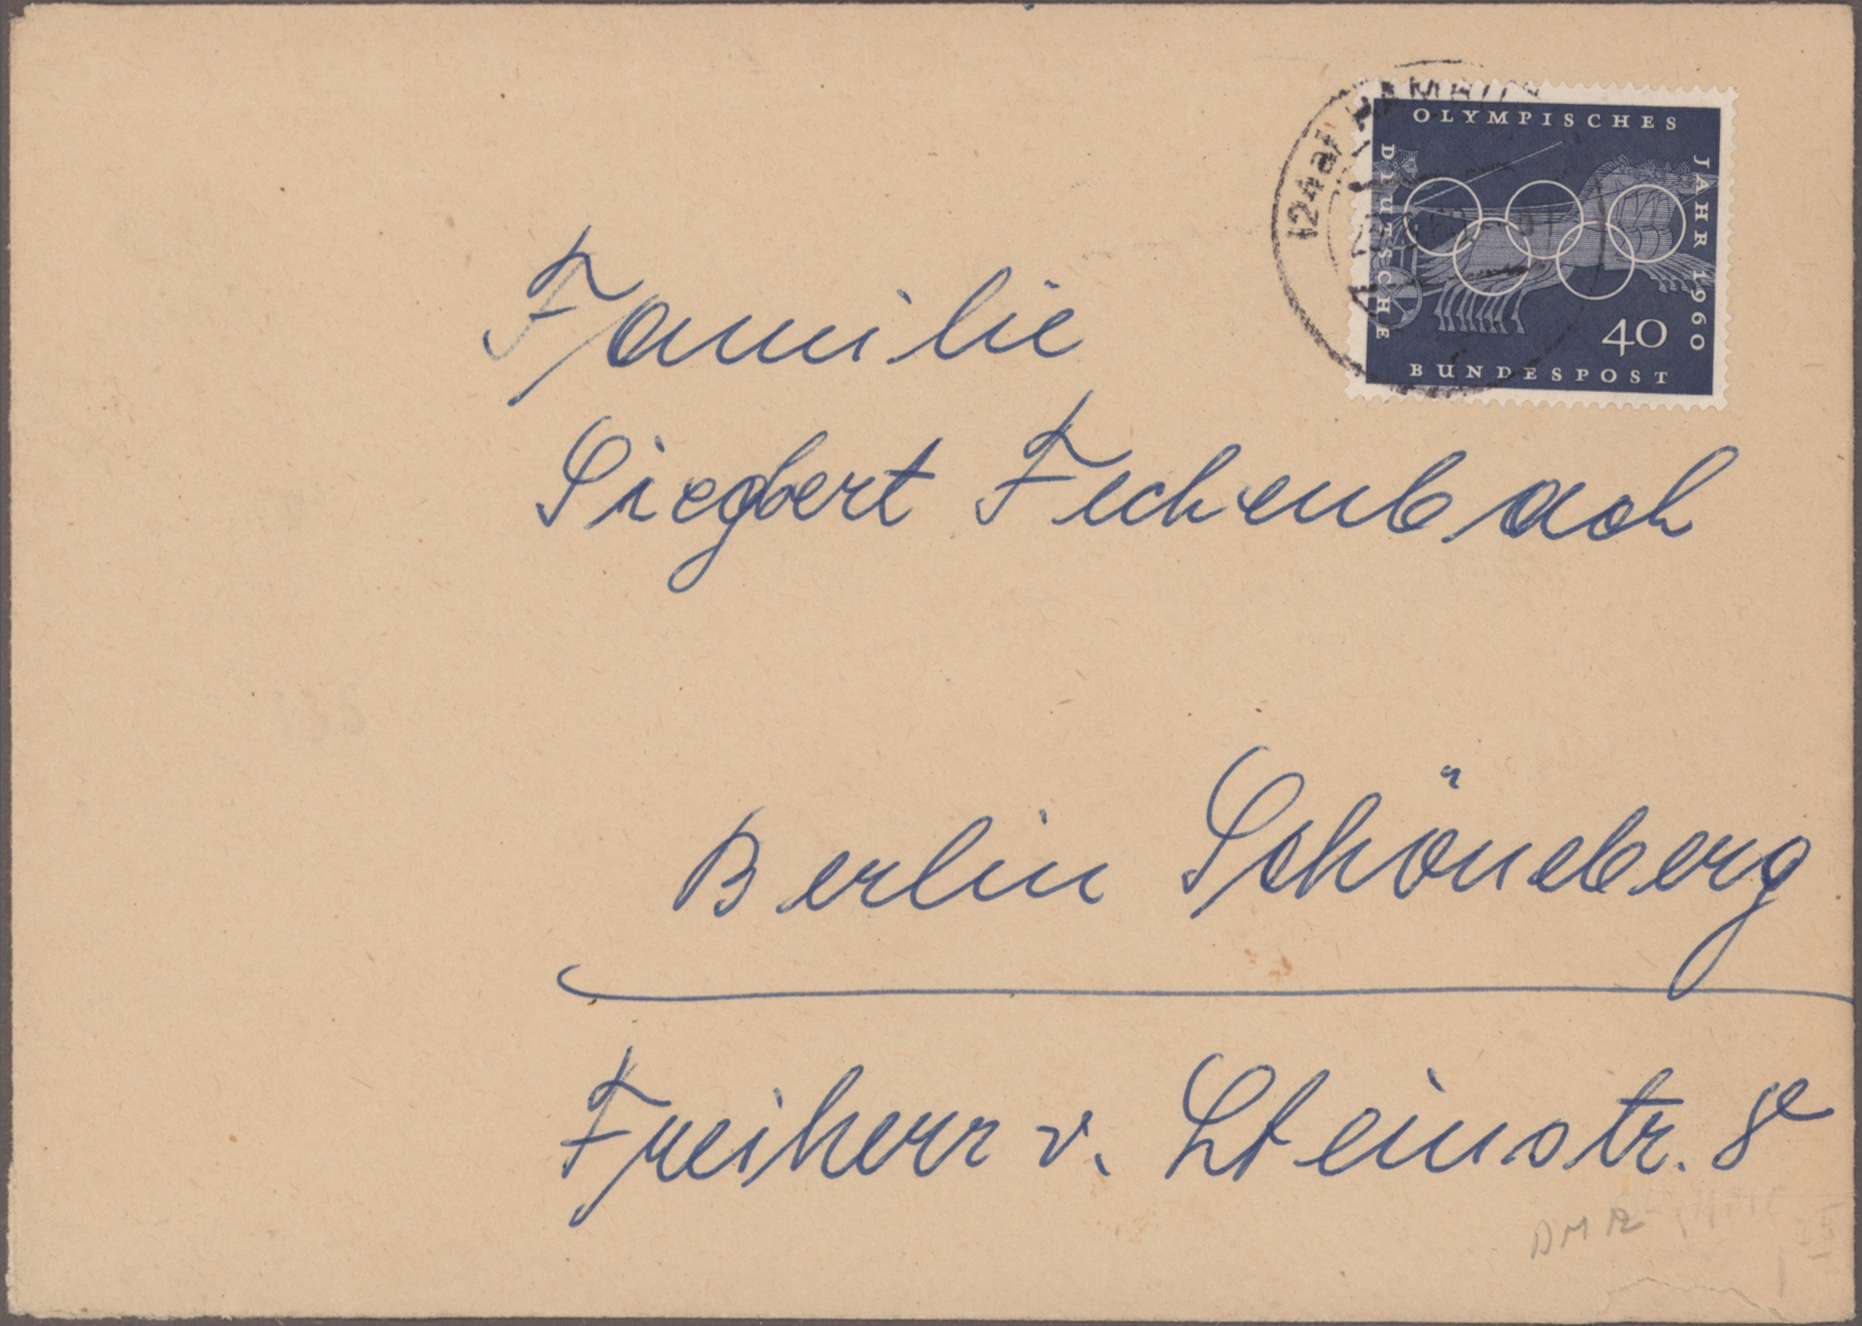 (24a) HAMBURG
OLYMPISCHES
JAHR 1960
DEUTSCHE
40
BUNDESPOST
Familie
Siegbert Fechenbach
Berlin Schöneberg
Freiherr v. Steinstr. 8
DM 12